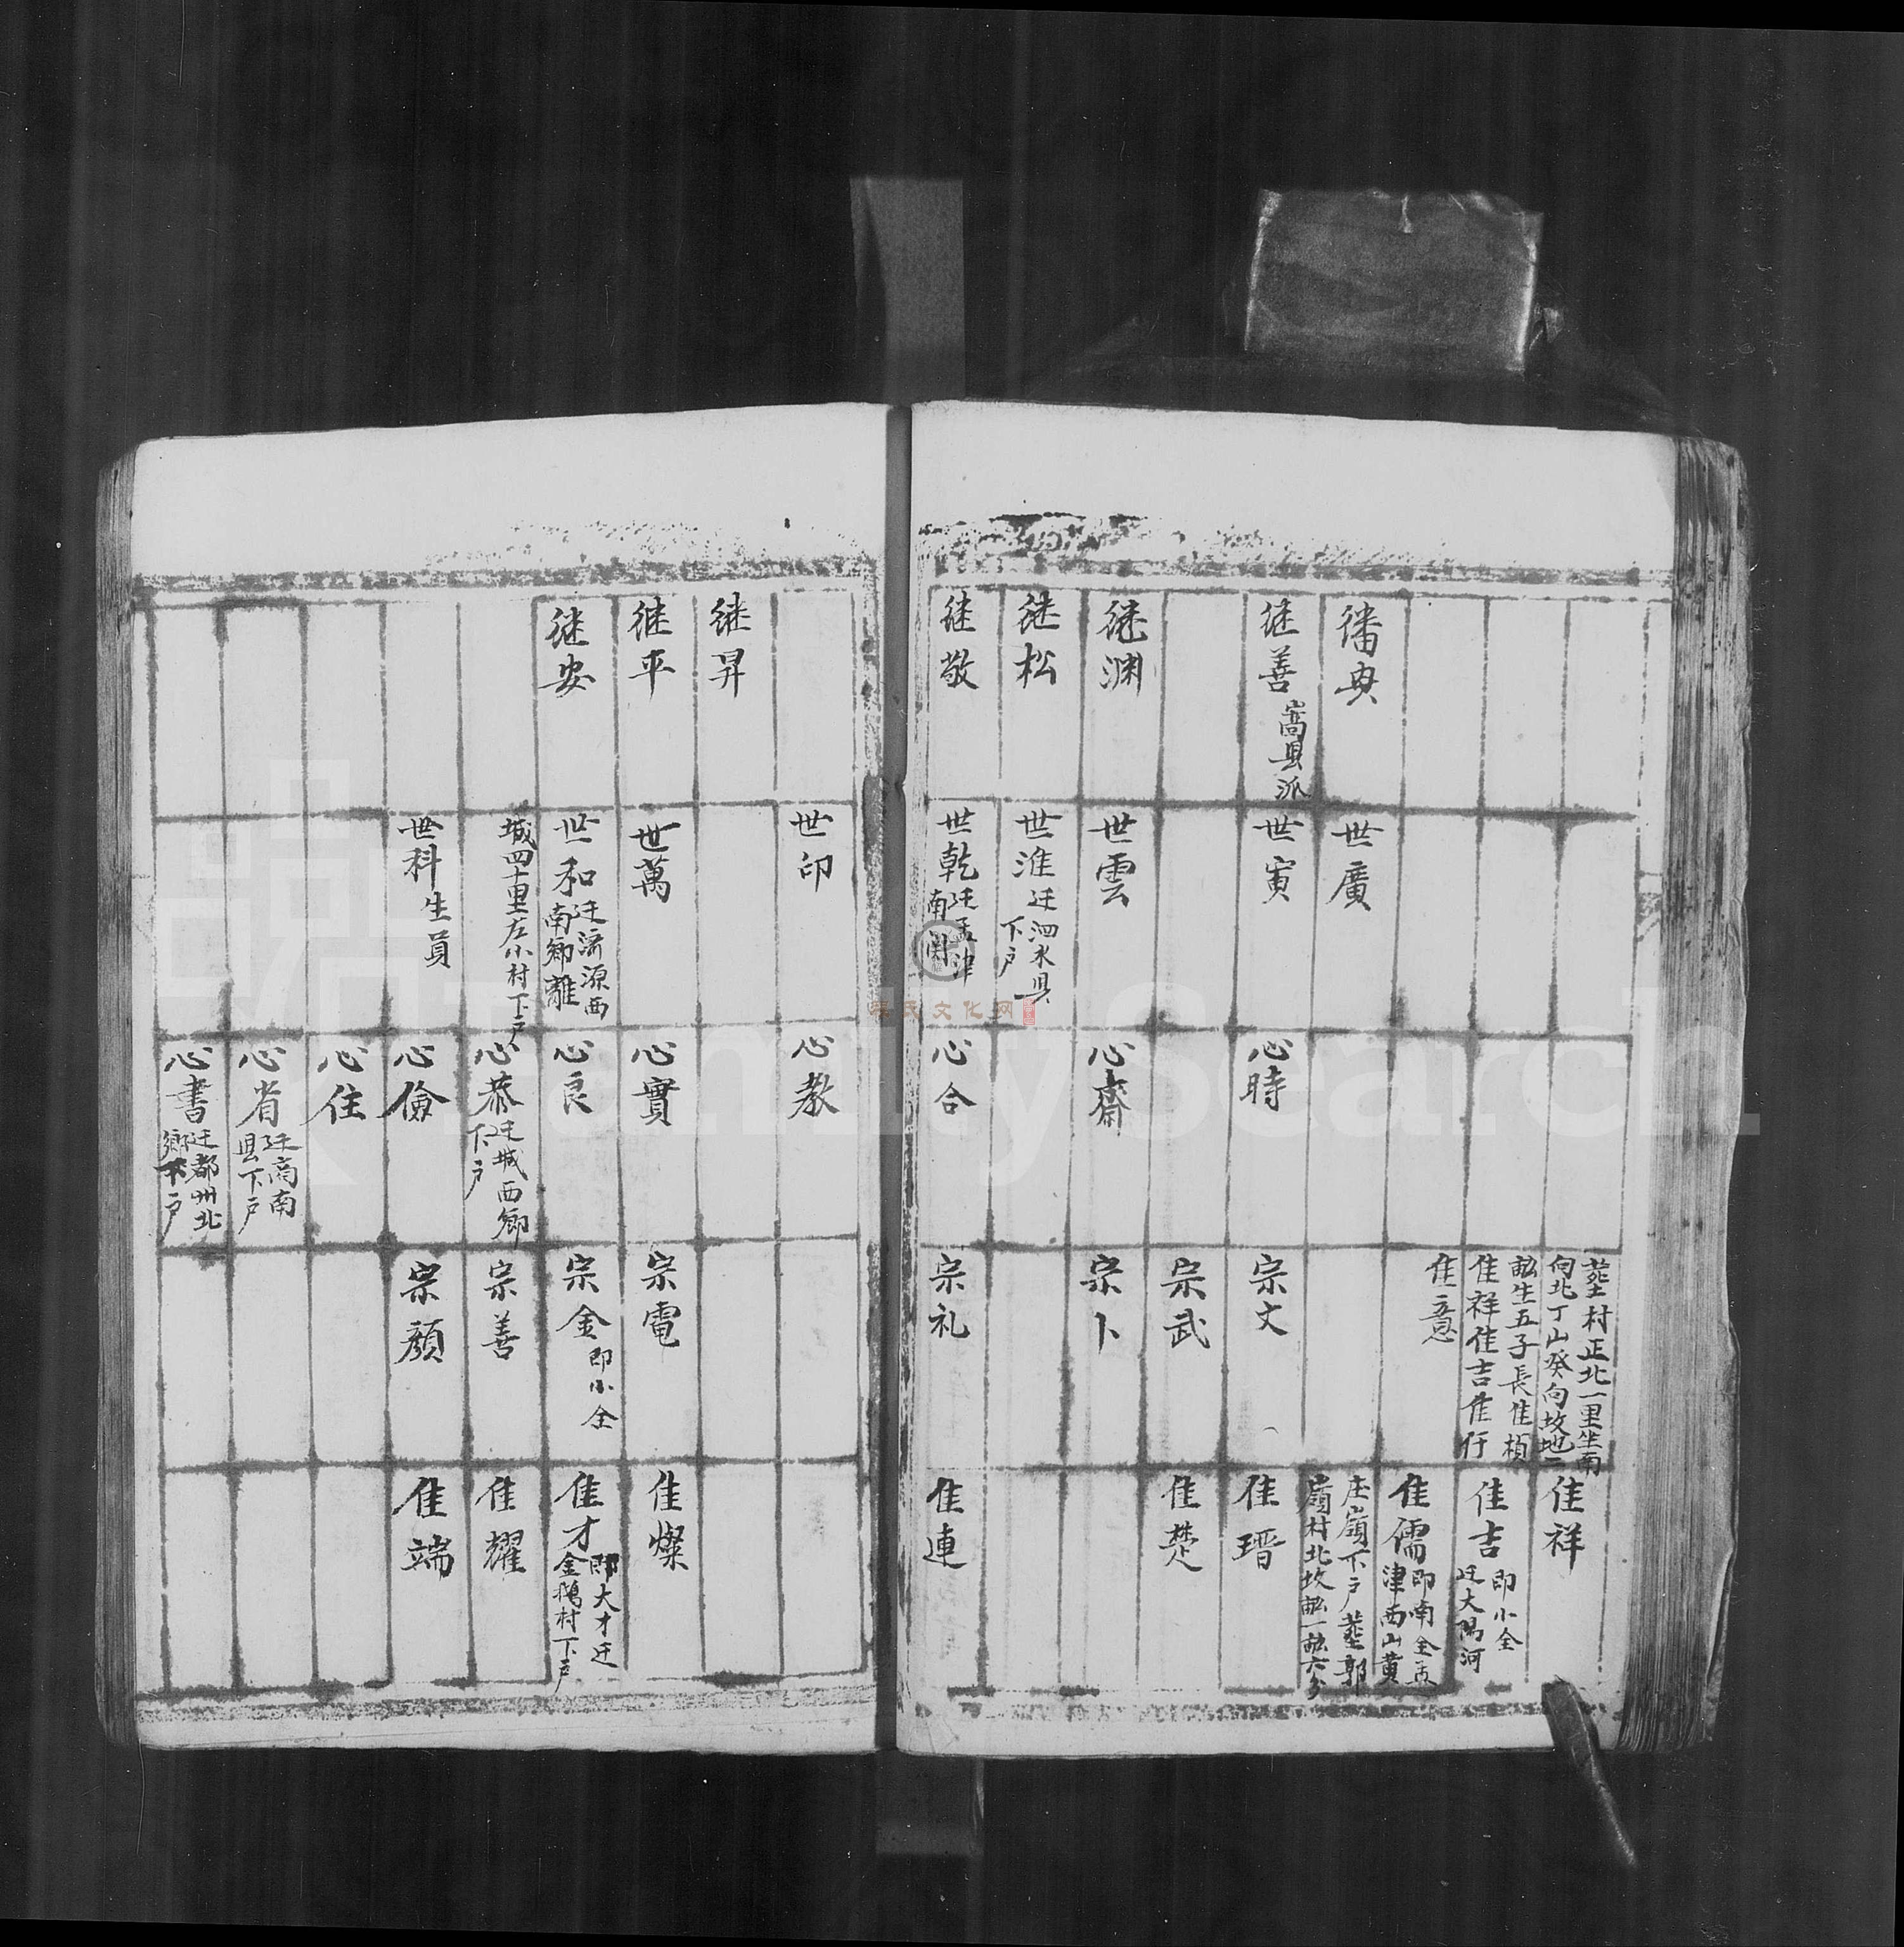 継善嵩县派
継渊
継松
継敬
世廣
世寅
世雲
世淮迁泗水县
下户
世乾迁孟津
南関
心時
心齋
心合
葬村正北一里坐南
向北丁山癸向坟地二
畝生五子長隹楨
隹祥隹吉隹仟
隹意
宗文
宗武
宗卜
宗礼
隹祥
隹吉即小全
迁大陽河
隹儒即南全孟
津西山黄
庄嶺下户葬郭
嶺村北坟畝一畝六分
隹瑨
隹楚
隹連
継昇
継平
継安
世印
世萬
世和迁济源西
南鄉離
城四十里左小村下户
世科生員
心教
心實
心良
心恭迁城西鄉
下户
心儉
心住
心省迁商南
县下户
心書迁都州北
鄉下户
宗電
宗金即小全
宗善
宗顔
隹燦
隹才即大才迁
金鵝村下户
隹耀
隹端
吴氏文化网
FamilySearch